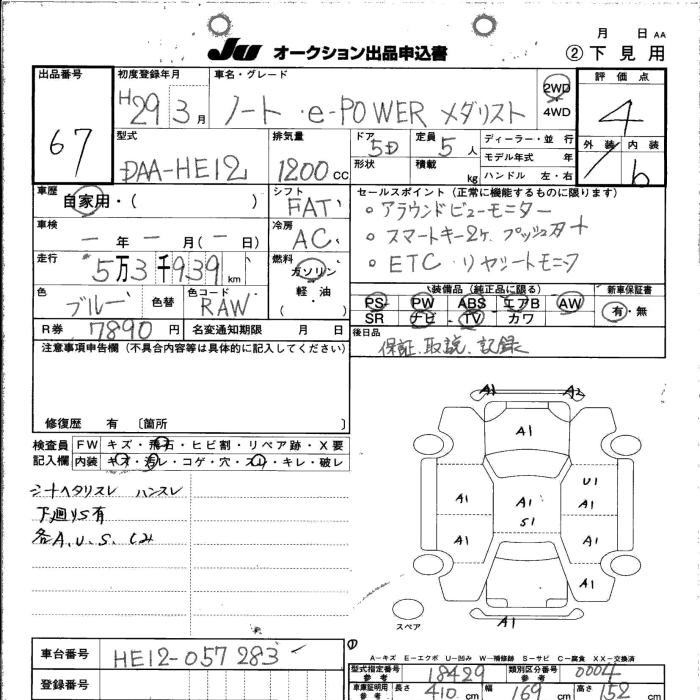 月 日 AA
JU オークション出品申込書
② 下見用
出品番号 初度登録年月 車名・グレード 2WD 4WD 評価点
67 H29 3月 ノート e-POWER メダリスト 4
型式 排気量 ドア 5D 定員 5人 ディーラー・並 行 外装 内装
DAA-HE12 1200cc 形状 積載 kg モデル年式 年 b
ハンドル 左・右
車歴 自家用・( ) シフト FAT セールスポイント(正常に機能するものに限ります)
車検 ー年ー月(ー日) 冷房 AC 。アラウンドビューモニター
。スマートキー2ヶ. プッシュスタート
走行 5万3千939km 燃料 ガソリン 軽・油 ( 。ETC・リヤシートモニタ
装備品(純正品に限る) 新車保証書
色 ブルー 色替 色コード RAW PS PW ABS エアB AW 有・無
SR ナビ TV カワ
R券 7890円 名変通知期限 月 日 後日品
注意事項申告欄(不具合内容等は具体的に記入してください) 保証.取説.記録
修復歴 有〔箇所 〕
検査員 FW キズ・飛石・ヒビ割・リペア跡・X要
記入欄 内装 キズ・汚レ・コゲ・穴・スレ・キレ・破レ
シートヘタリスレ ハンスレ
下廻りS有
各A.U.S.
A1 A2
A1
U1
A1 A1 A1
S1
A1 A1
A1
A1
スペア
A-キズ E-エクボ U-凹み W-補修跡 S-サビ C-腐食 XX-交換済
車台番号 HE12-057283
型式指定番号 参考 18429 類別区分番号 参考 0004
登録番号
車庫証明用 参考 長さ 410cm 幅 169cm 高さ 152cm